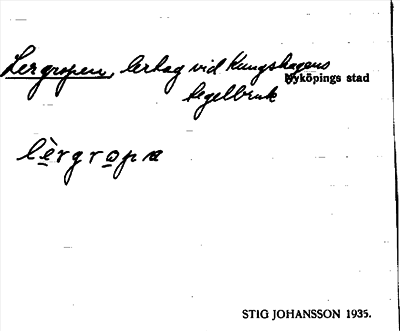 Lergropen, lertag vid Kungshagens
Nyköpings stad
tegelbruk
lèrgropa
STIG JOHANSSON 1935.